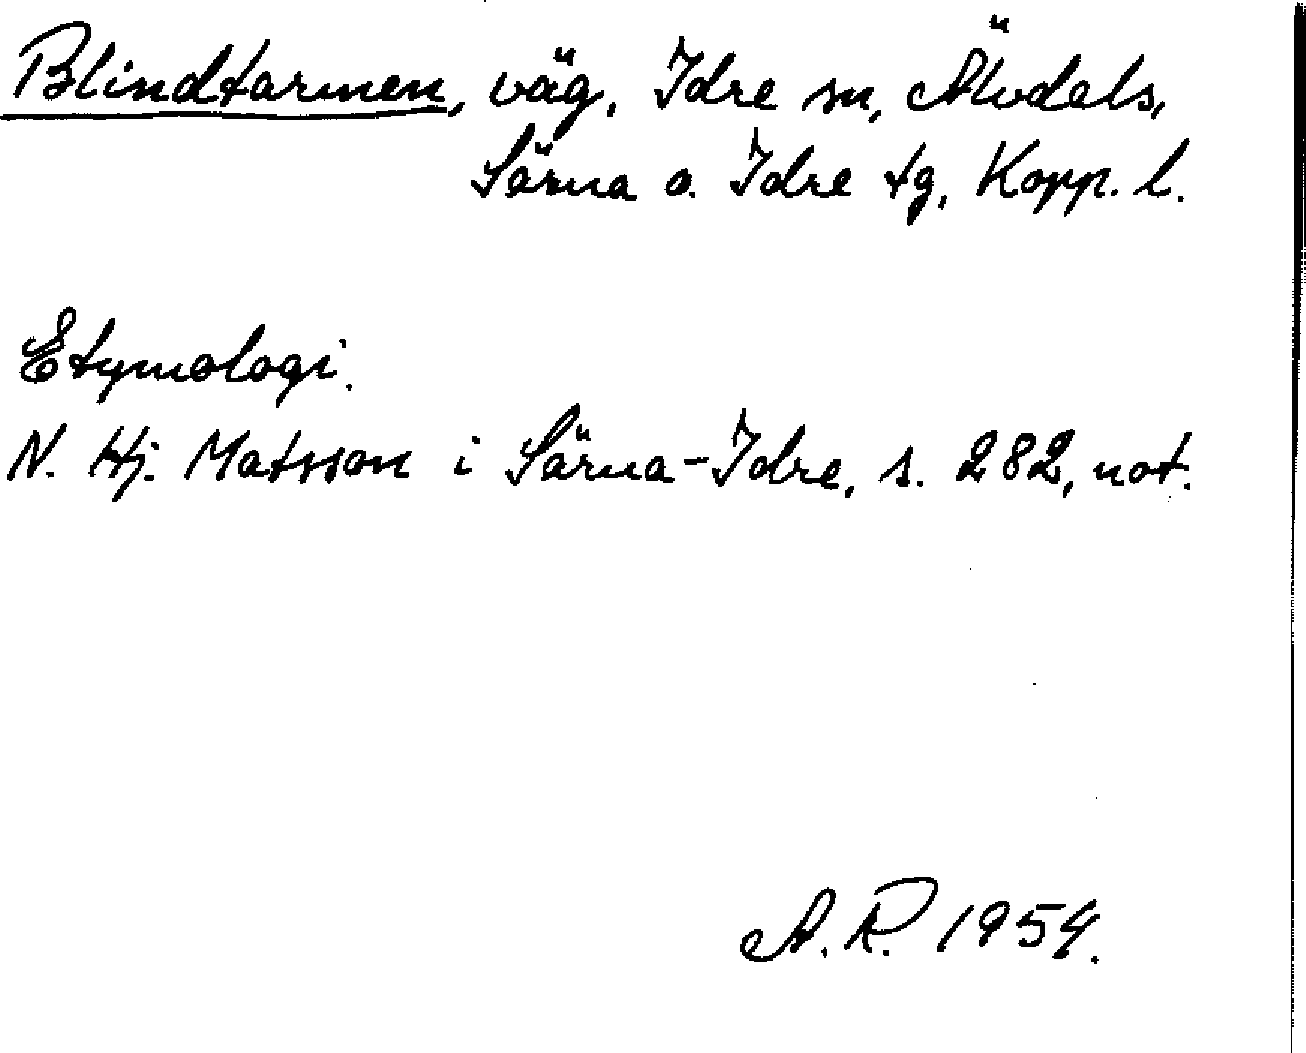 Blindtarmen, väg, Idre sn, Älvdals,
Särna o. Idre tg, Kopp. l.
Etymologi.
N. Hj. Matsson i Särna-Idre, s. 282, not.
A. R. 1954.